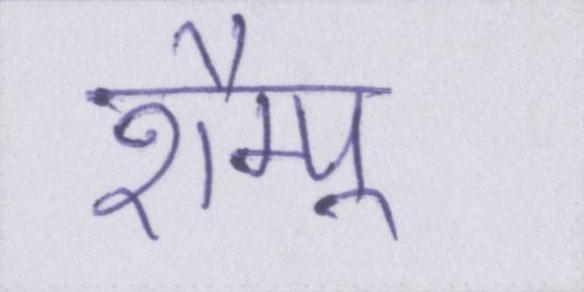 शैम्पू